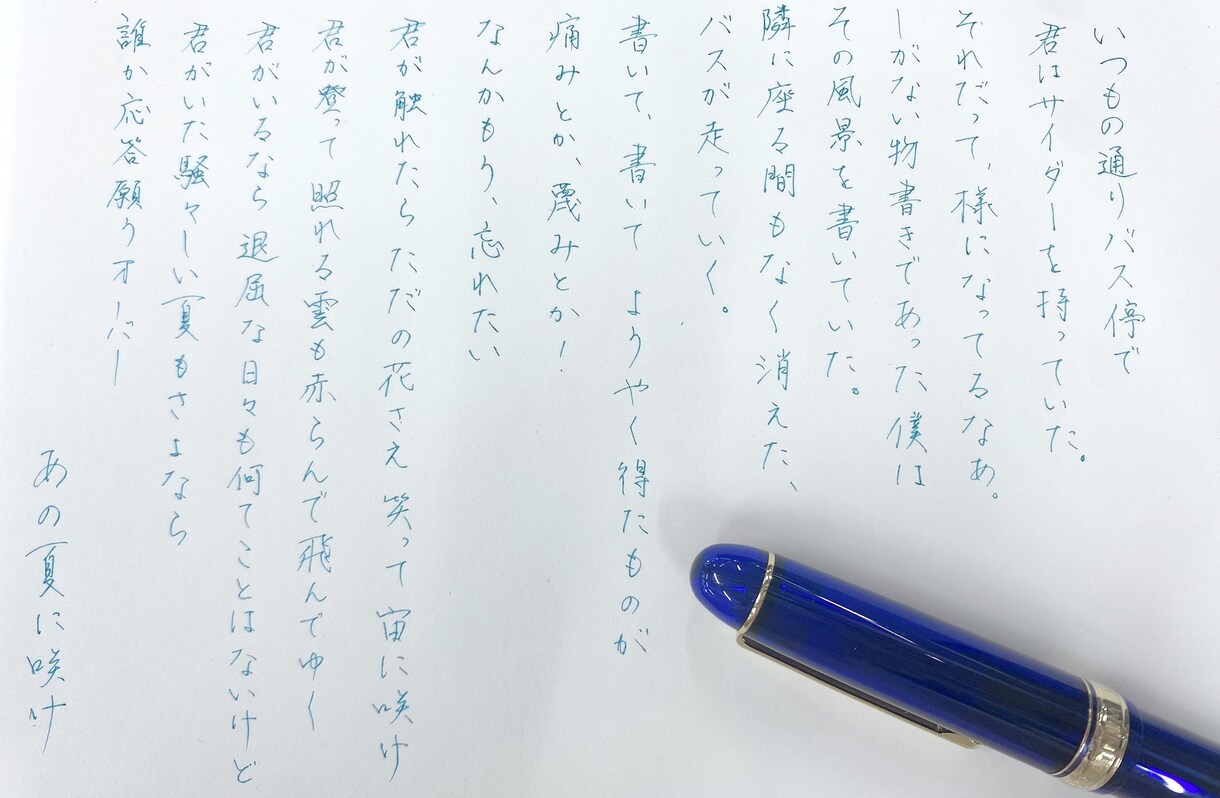 いつもの通りバス停で
君はサイダーを持っていた。
それだって、様になってるなあ。
しがない物書きであった僕は
その風景を書いていた。
隣に座る間もなく消えた、
バスが走っていく。
書いて、書いて ようやく得たものが
痛みとか、蔑みとか!
なんかもう、忘れたい
君が触れたら ただの花さえ 笑って 宙に咲け
君が登って 照れる雲も赤らんで飛んでゆく
君がいるなら 退屈な日々も何てことはないけど
君がいた騒々しい夏もさよなら
誰か応答願うオーバー
あの夏に咲け